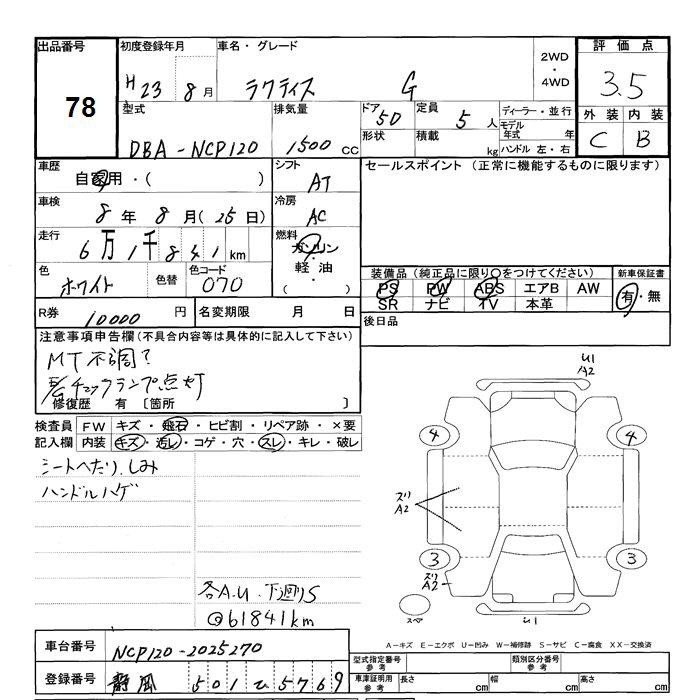 出品番号
78
初度登録年月
H 23 8 月
車名・グレード
ラクティス G
2WD
・
4WD
評価点
3.5
外装 内装
C B
型式
DBA-NCP120
排気量
1500 CC
ドア 5D
定員 5 人
形状
積載 kg
ディーラー・並行
モデル年式 年
ハンドル 左・右
車歴
自家用・( )
シフト
AT
セールスポイント (正常に機能するものに限ります)
車検
8 年 8 月 (25 日)
冷房
AC
走行
6万1千841 km
燃料
ガソリン
・
軽油
・
( )
色
ホワイト
色替
色コード
070
装備品 (純正品に限り○をつけてください)
新車保証書
PS PW ABS エアB AW
SR ナビ TV 本革
有・無
R券
10000 円
名変期限 月 日
後日品
注意事項申告欄(不具合内容等は具体的に記入して下さい)
MT不調?
E/Gチェックランプ点灯
修復歴 有 〔箇所 〕
検査員記入欄
FW キズ・飛石・ヒビ割・リペア跡・×要
内装 キズ・汚レ・コゲ・穴・スレ・キレ・破レ
シートへたり、しみ
ハンドルハゲ
各A.U.下廻りS
@61841km
U1
A2
4 4
スリ
A2
3 3
スリ
A2
スペア
U1
A-キズ E-エクボ U-凹み W-補修跡 S-サビ C-腐食 XX-交換済
車台番号
NCP120-2025270
登録番号
静岡 501 ひ 5769
型式指定番号
参考
類別区分番号
参考
車庫証明用
参考
長さ cm
幅 cm
高さ cm